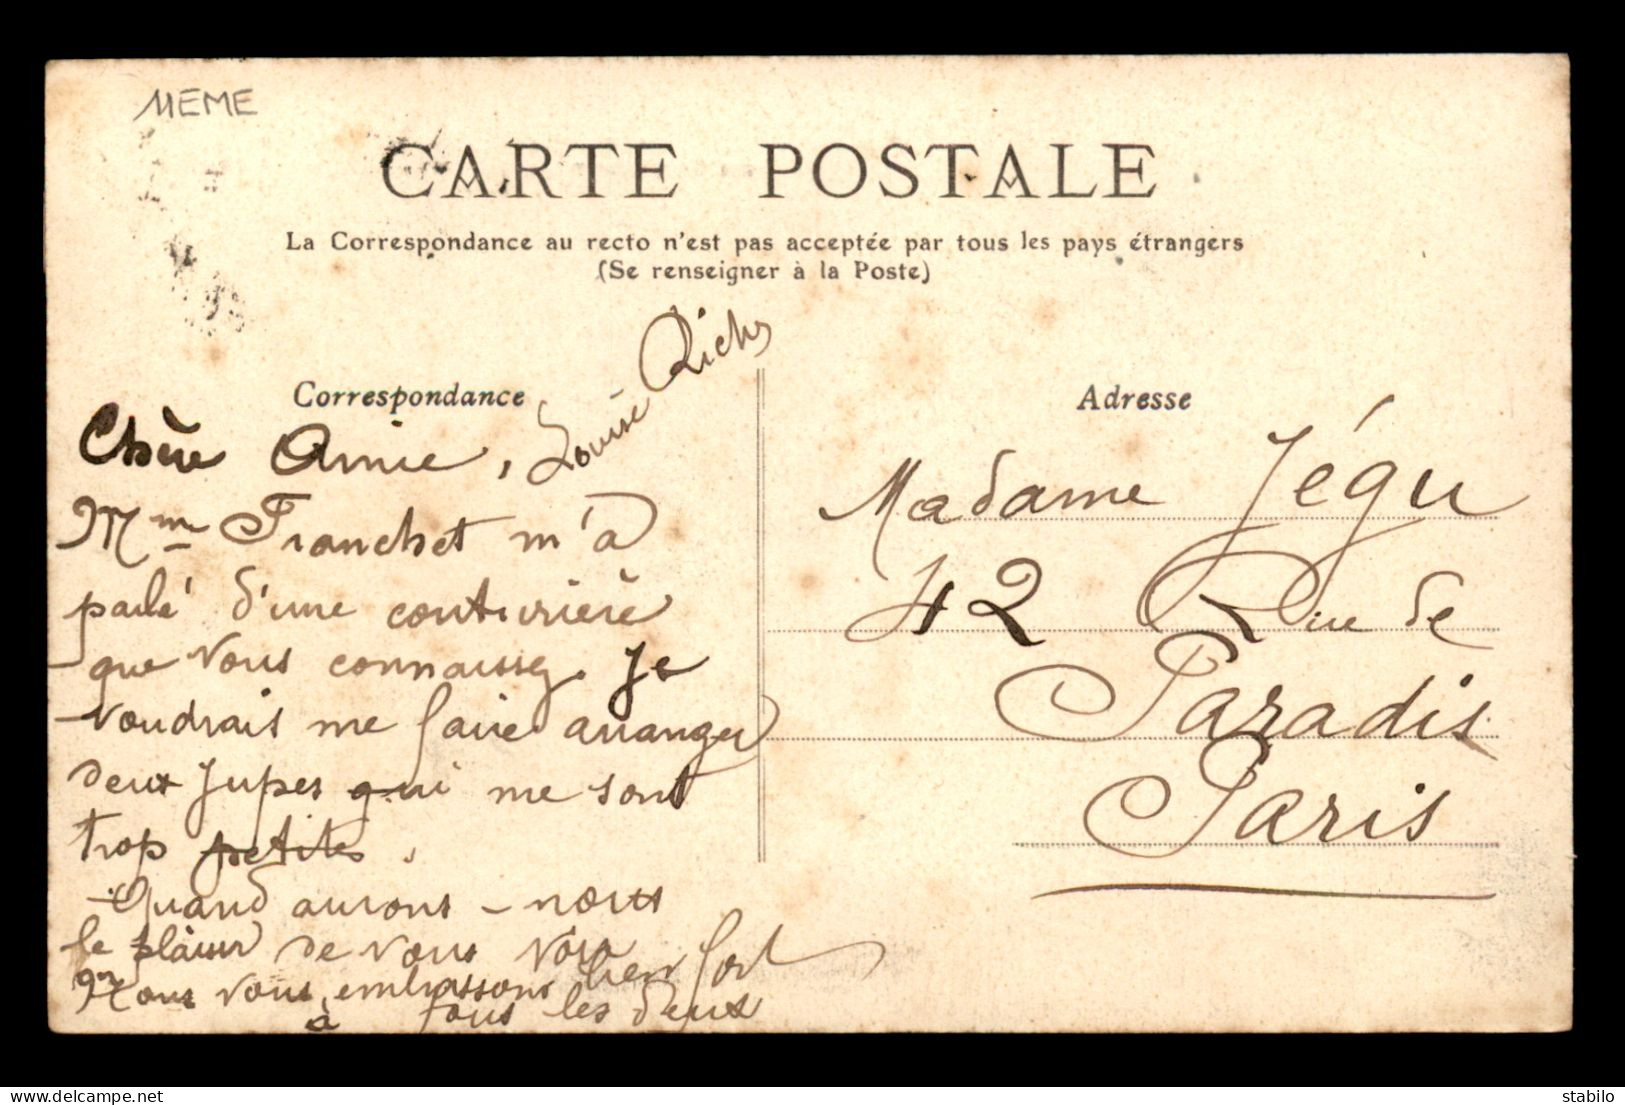 MEME
CARTE POSTALE
La Correspondance au recto n'est pas acceptée par tous les pays étrangers
(Se renseigner à la Poste)
Correspondance
Chère Amie,
Mme Franchet m'a
parlé d'une couturière
que vous connaissez. Je
voudrais me faire arranger
deux jupes qui me sont
trop petites.
Quand aurons-nous
le plaisir de vous voir
Nous vous embrassons bien fort
à tous les deux
Louise
Adresse
Madame Jégu
42 Rue de
Paradis
Paris
delcampe.net
stabilo